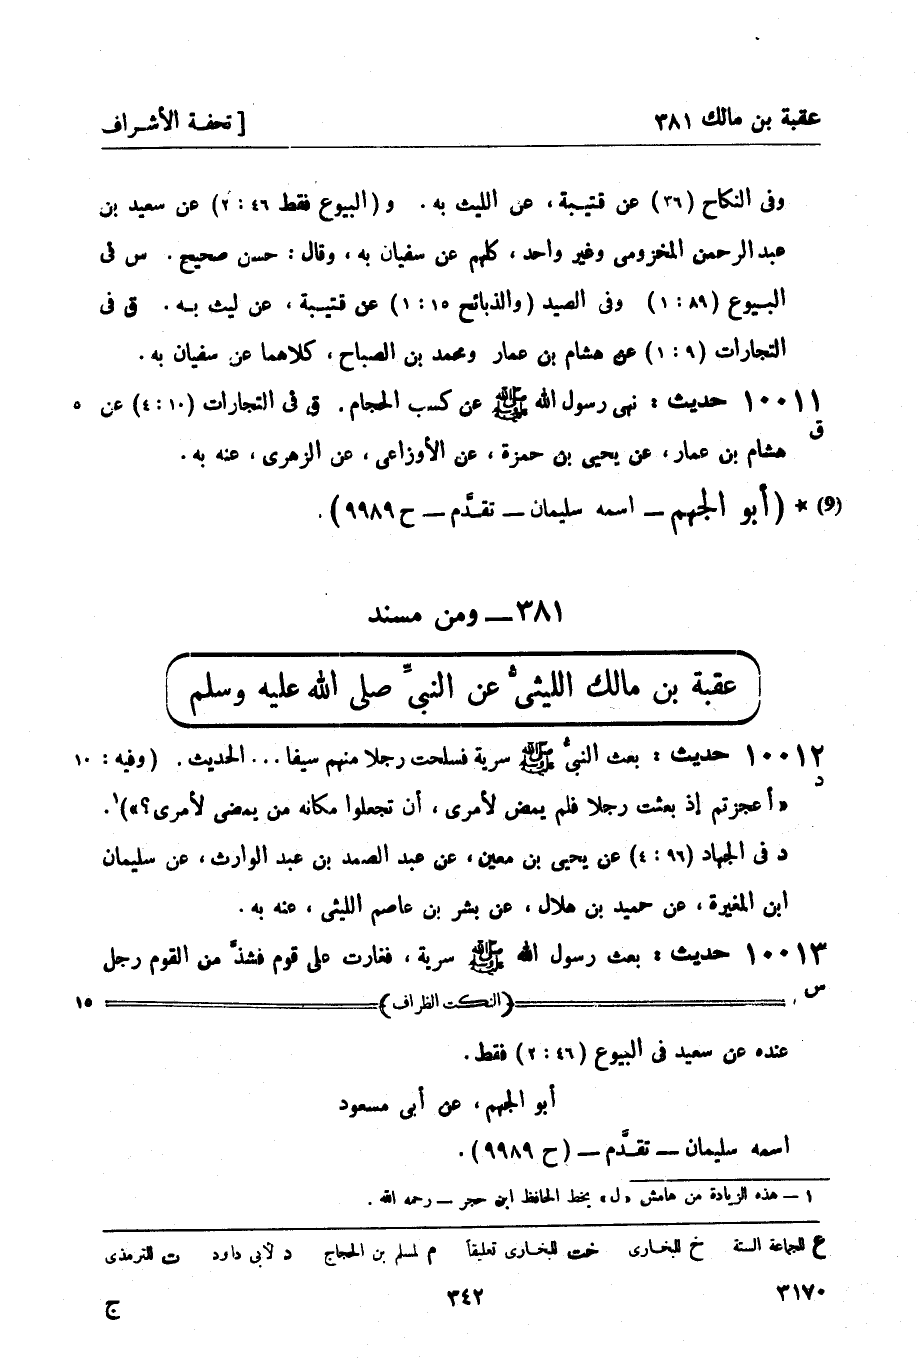 عقبة بن مالك ٣٨١ [ تحفة الأشراف
وفى النكاح (٣٦) عن قتيبة ، عن الليث به . و (البيوع فقط ٤٦ : ٢) عن سعيد بن
عبد الرحمن المخزومى وغير واحد ، كلهم عن سفيان به ، وقال : حسن صحيح . س فى
البيوع (٨٩ : ١) وفى الصيد (والذبائح ١٥ : ١) عن قتيبة ، عن ليث به . ق فى
التجارات (٩ : ١) عن هشام بن عمار ومحمد بن الصباح ، كلاهما عن سفيان به .
١٠٠١١ حديث : نهى رسول الله ﷺ عن كسب الحجام . ق فى التجارات (١٠ : ٤) عن ٥
ق
هشام بن عمار ، عن يحيى بن حمزة ، عن الأوزاعى ، عن الزهرى ، عنه به .
(9) * (أبو الجهم — اسمه سليمان — تقدَّم — ح ٩٩٨٩) .
٣٨١ — ومن مسند
عقبة بن مالك الليثىُّ عن النبىِّ صلى الله عليه وسلم
١٠٠١٢ حديث : بعث النبىُّ ﷺ سرية فسلحت رجلا منهم سيفا ... الحديث . (وفيه : ١٠
د
«أعجزتم إذ بعثت رجلا فلم يمض لأمرى ، أن تجعلوا مكانه من يمضى لأمرى؟»)١.
د فى الجهاد (٩٦ : ٤) عن يحيى بن معين ، عن عبد الصمد بن عبد الوارث ، عن سليمان
ابن المغيرة ، عن حميد بن هلال ، عن بشر بن عاصم الليثى ، عنه به .
١٠٠١٣ حديث : بعث رسول الله ﷺ سرية ، فغارت على قوم فشذَّ من القوم رجل
س
(النكت الظراف) ١٥
عنده عن سعيد فى البيوع (٤٦ : ٢) فقط .
أبو الجهم ، عن أبى مسعود
اسمه سليمان — تقدَّم — (ح ٩٩٨٩) .
١ — هذه الزيادة من هامش «ل» بخط الحافظ ابن حجر — رحمه الله .
ع للجماعة الستة خ للبخارى خت للبخارى تعليقاً م لمسلم بن الحجاج د لأبى داود ت للترمذى
٣١٧٠ ٣٤٢ ج